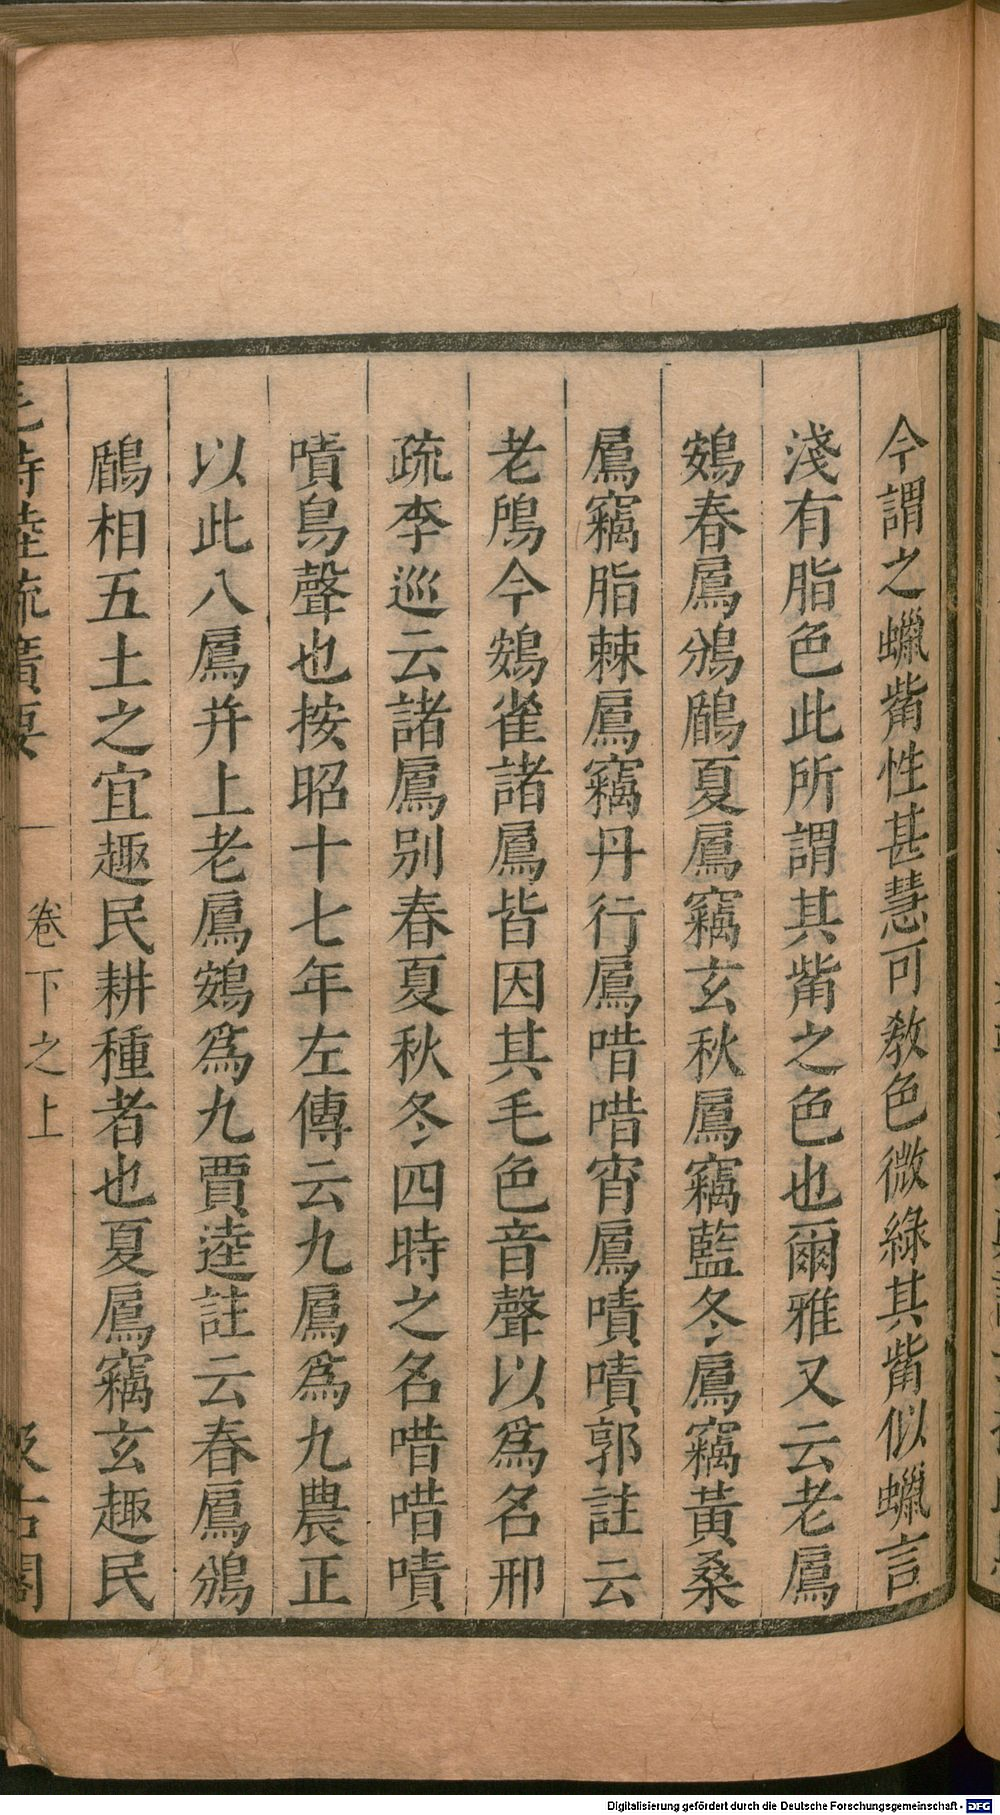 今謂之蠟觜性甚慧可敎色微綠其觜似蠟言
淺有脂色此所謂其觜之色也爾雅又云老鳸
鷃春鳸鳻鶞夏鳸竊玄秋鳸竊藍冬鳸竊黃桑
鳸竊脂棘鳸竊丹行鳸唶唶宵鳸嘖嘖郭註云
老鳲今鷃雀諸鳸皆因其毛色音聲以爲名邢
疏李巡云諸鳸別春夏秋冬四時之名唶唶嘖
嘖鳥聲也按昭十七年左傳云九鳸爲九農正
以此八鳸幷上老鳸鷃爲九賈逵註云春鳸鳻
鶞相五土之宜趣民耕種者也夏鳸竊玄趣民
毛詩陸疏廣要 卷下之上 汲古閣
Digitalisierung gefördert durch die Deutsche Forschungsgemeinschaft - DFG